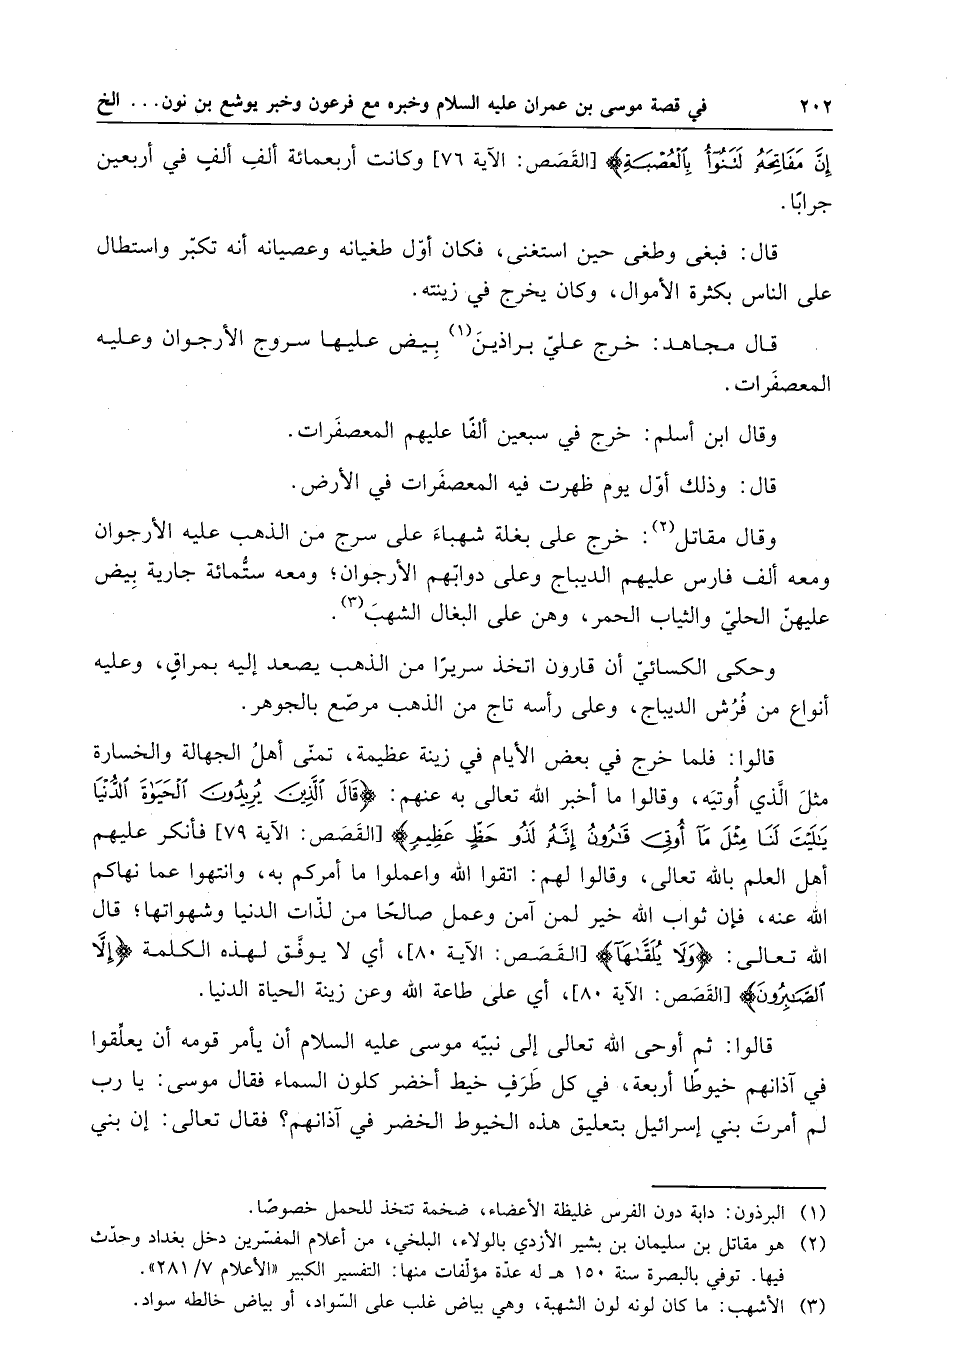 ٢٠٢ في قصة موسى بن عمران عليه السلام وخبره مع فرعون وخبر يوشع بن نون... الخ
إِنَّ مَفَاتِحَهُ لَتَنُوٓأُ بِٱلْعُصْبَةِ﴾ [القَصَص: الآية ٧٦] وكانت أربعمائة ألفِ ألفٍ في أربعين
جرابًا.
قال: فبغى وطغى حين استغنى، فكان أوّل طغيانه وعصيانه أنه تكبّر واستطال
على الناس بكثرة الأموال، وكان يخرج في زينته.
قال مجاهد: خرج عليّ براذينَ(١) بِيض عليها سروج الأرجوان وعليه
المعصفَرات.
وقال ابن أسلم: خرج في سبعين ألفًا عليهم المعصفَرات.
قال: وذلك أوّل يوم ظهرت فيه المعصفَرات في الأرض.
وقال مقاتل(٢): خرج على بغلة شهباءَ على سرج من الذهب عليه الأرجوان
ومعه ألف فارس عليهم الديباج وعلى دوابّهم الأرجوان؛ ومعه ستُّمائة جارية بِيض
عليهنّ الحليّ والثياب الحمر، وهن على البغال الشهبَ(٣).
وحكى الكسائيّ أن قارون اتخذ سريرًا من الذهب يصعد إليه بمراقٍ، وعليه
أنواع من فُرُش الديباج، وعلى رأسه تاج من الذهب مرصّع بالجوهر.
قالوا: فلما خرج في بعض الأيام في زينة عظيمة، تمنّى أهلُ الجهالة والخسارة
مثلَ الَّذي أُوتيَه، وقالوا ما أخبر الله تعالى به عنهم: ﴿قَالَ ٱلَّذِينَ يُرِيدُونَ ٱلْحَيَوٰةَ ٱلدُّنْيَا
يَٰلَيْتَ لَنَا مِثْلَ مَآ أُوتِىَ قَٰرُونُ إِنَّهُۥ لَذُو حَظٍّ عَظِيمٍ﴾ [القَصَص: الآية ٧٩] فأنكر عليهم
أهل العلم بالله تعالى، وقالوا لهم: اتقوا الله واعملوا ما أمركم به، وانتهوا عما نهاكم
الله عنه، فإن ثواب الله خير لمن آمن وعمل صالحًا من لذّات الدنيا وشهواتها؛ قال
الله تعالى: ﴿وَلَا يُلَقَّىٰهَآ﴾ [القَصَص: الآية ٨٠]، أي لا يوفَّق لهذه الكلمة ﴿إِلَّا
ٱلصَّٰبِرُونَ﴾ [القَصَص: الآية ٨٠]، أي على طاعة الله وعن زينة الحياة الدنيا.
قالوا: ثم أوحى الله تعالى إلى نبيّه موسى عليه السلام أن يأمر قومه أن يعلِّقوا
في آذانهم خيوطًا أربعة، في كل طَرَفٍ خيط أخضر كلون السماء فقال موسى: يا رب
لم أمرتَ بني إسرائيل بتعليق هذه الخيوط الخضر في آذانهم؟ فقال تعالى: إن بني
(١) البرذون: دابة دون الفرس غليظة الأعضاء، ضخمة تتخذ للحمل خصوصًا.
(٢) هو مقاتل بن سليمان بن بشير الأزدي بالولاء، البلخي، من أعلام المفسّرين دخل بغداد وحدّث
فيها. توفي بالبصرة سنة ١٥٠ هـ له عدّة مؤلّفات منها: التفسير الكبير «الأعلام ٧/ ٢٨١».
(٣) الأشهب: ما كان لونه لون الشهبة، وهي بياض غلب على السّواد، أو بياض خالطه سواد.